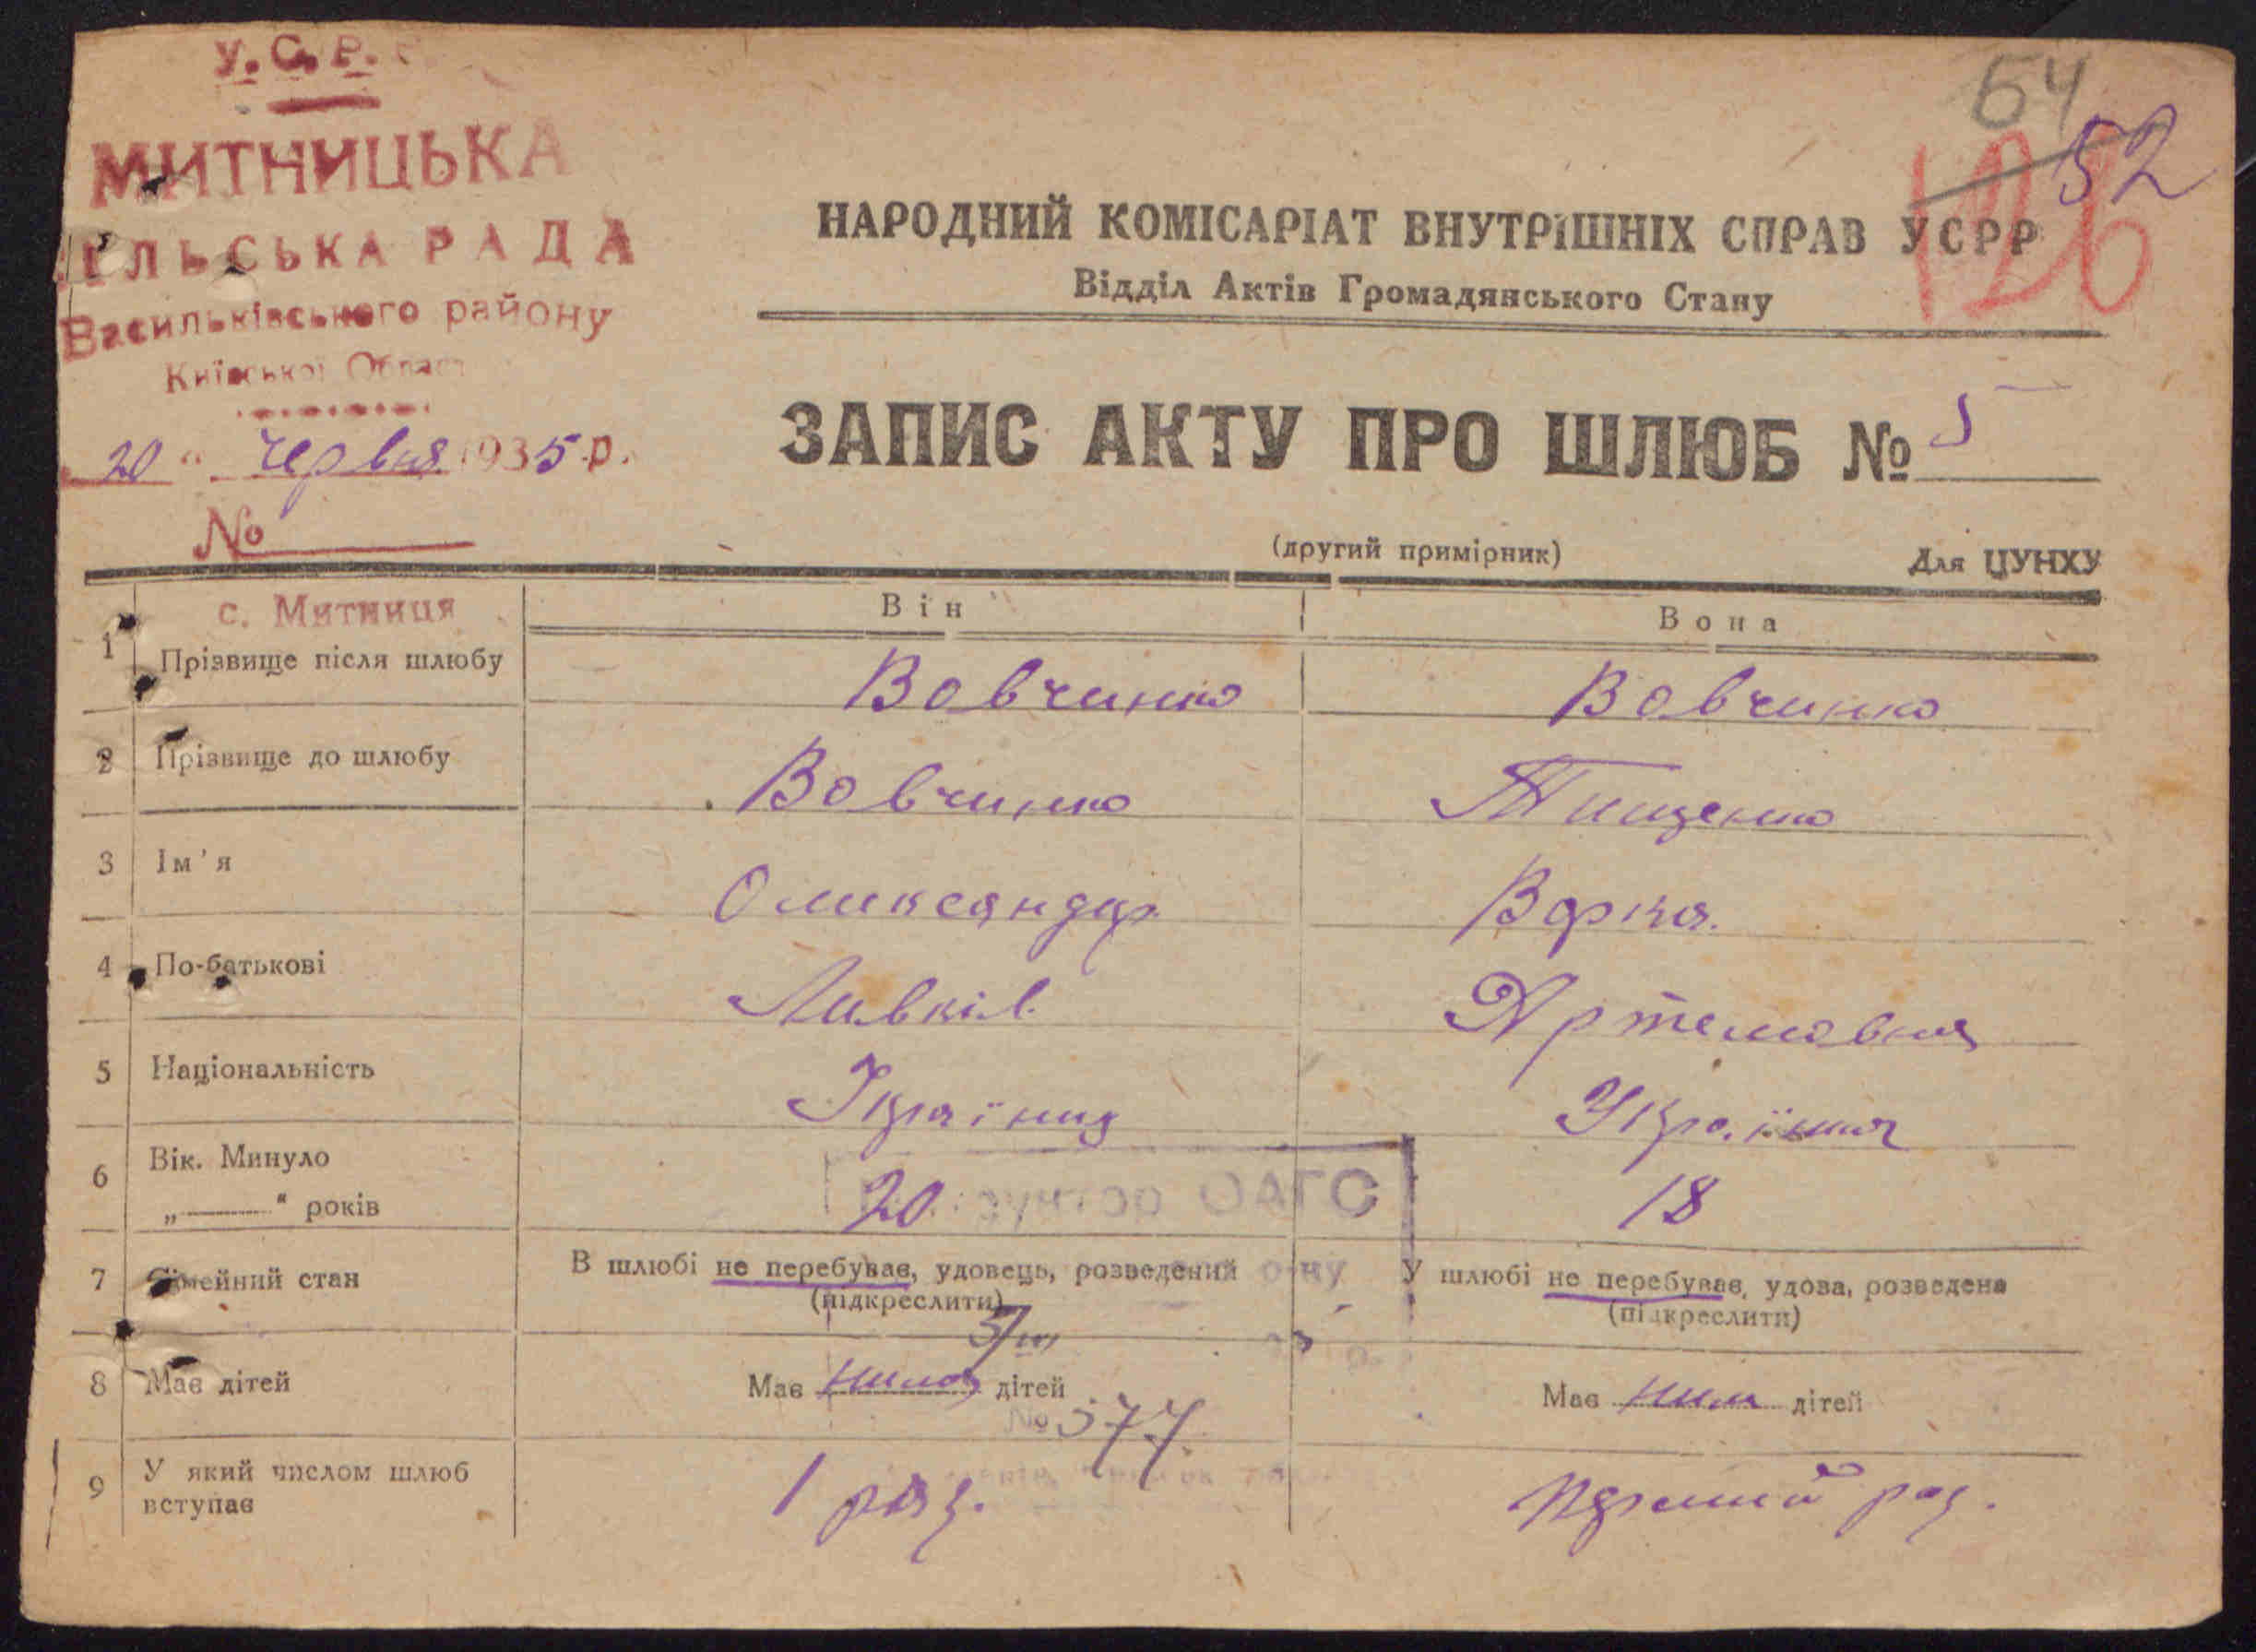 У.С.Р.Р.
МИТНИЦЬКА
СІЛЬСЬКА РАДА
Васильківського району
Київської Област
20 " червня 1935 р.
№
54
52
126
НАРОДНИЙ КОМІСАРІАТ ВНУТРІШНІХ СПРАВ УСРР
Відділ Актів Громадянського Стану
ЗАПИС АКТУ ПРО ШЛЮБ № 5
(другий примірник) Для ЦУНХУ
с. Митниця
Він Вона
1 Прізвище після шлюбу Вовчинко Вовчинко
2 Прізвище до шлюбу Вовчинко Тищенко
3 Ім'я Олександр Варка.
4 По-батькові Ливків Артемовна
5 Національність Українц Українка
6 Вік. Минуло
„——“ років 20 18
ОАГС
7 Сімейний стан В шлюбі не перебував, удовець, розведений У шлюбі не перебував, удова, розведена
(підкреслити) (підкреслити)
8 Має дітей Має нима дітей Має ним дітей
№ 577
9 У який числом шлюб
вступає 1 раз. Перший раз.